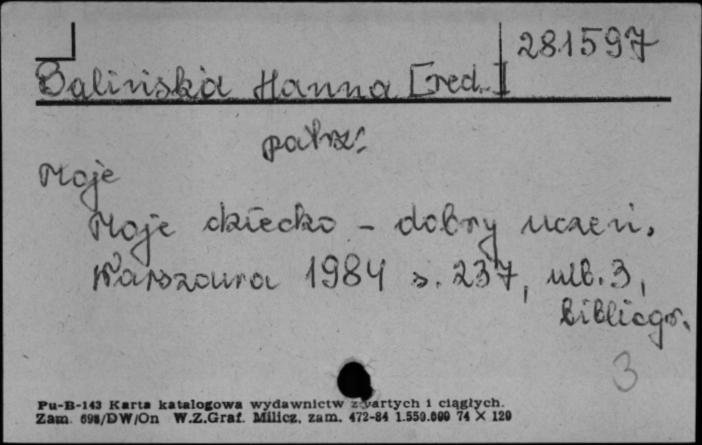 281597
Balińska Hanna [red.]
patrz:
Moje
Moje dziecko - dobry uczeń.
Warszawa 1984 s. 237, nlb. 3,
bibliogr.
3
Pu-B-143 Karta katalogowa wydawnictw zwartych i ciągłych.
Zam. 698/DW/On W.Z.Graf. Milicz, zam. 472-84 1.550.000 74 × 120